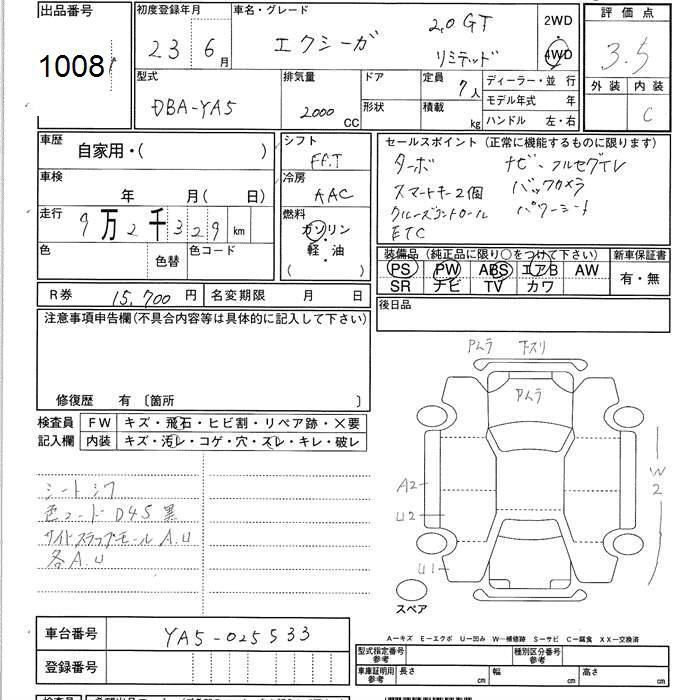 出品番号
1008
初度登録年月
23年 6月
車名・グレード
エクシーガ
2.0 GT
リミテッド
2WD
・
4WD
評価点
3.5
外装 内装
C
型式
DBA-YA5
排気量
2000
CC
ドア
形状
定員
7人
積載
kg
ディーラー・並行
モデル年式 年
ハンドル 左・右
車歴
自家用・( )
車検
年 月( 日)
走行
9万2千329 km
色
色替
色コード
シフト
FAT
冷房
AAC
燃料
ガソリン
・
軽・油
( )
セールスポイント (正常に機能するものに限ります)
ターボ ナビ、フルセグTV
スマートキー2個 バックカメラ
クルーズコントロール パワーシート
ETC
装備品(純正品に限り○をつけて下さい)
PS PW ABS エアB AW
SR ナビ TV カワ
新車保証書
有・無
R券 15,700円
名変期限 月 日
後日品
注意事項申告欄(不具合内容等は具体的に記入して下さい)
修復歴 有 〔箇所 〕
検査員
記入欄
FW キズ・飛石・ヒビ割・リペア跡・×要
内装 キズ・汚レ・コゲ・穴・スレ・キレ・破レ
シートシワ
色コード D4S 黒
サイドステップモール A.U
各A.U
アムラ 下スリ
アムラ
A2
U2
U1
W2
スペア
A－キズ E－エクボ U－凹み W－補修跡 S－サビ C－腐食 XX－交換済
車台番号
YA5-025533
登録番号
型式指定番号
参考
種別区分番号
参考
車庫証明用
参考
長さ cm
幅 cm
高さ cm